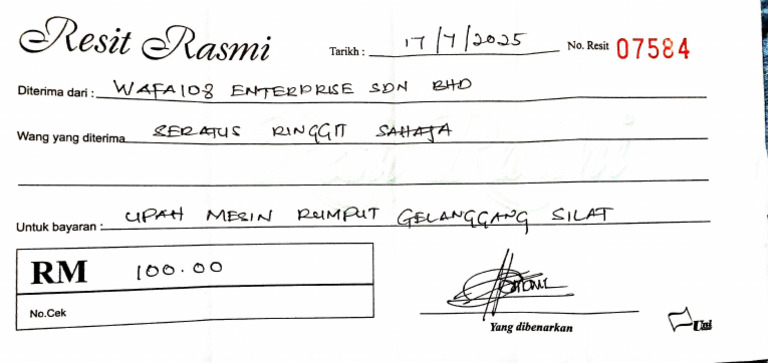 Resit Rasmi Tarikh : 17/7/2025 No. Resit 07584
Diterima dari : WAFA108 ENTERPRISE SDN BHD
Wang yang diterima SERATUS RINGGIT SAHAJA
Untuk bayaran : UPAH MESIN RUMPUT GELANGGANG SILAT
RM 100.00
No.Cek
Yang dibenarkan
Uni